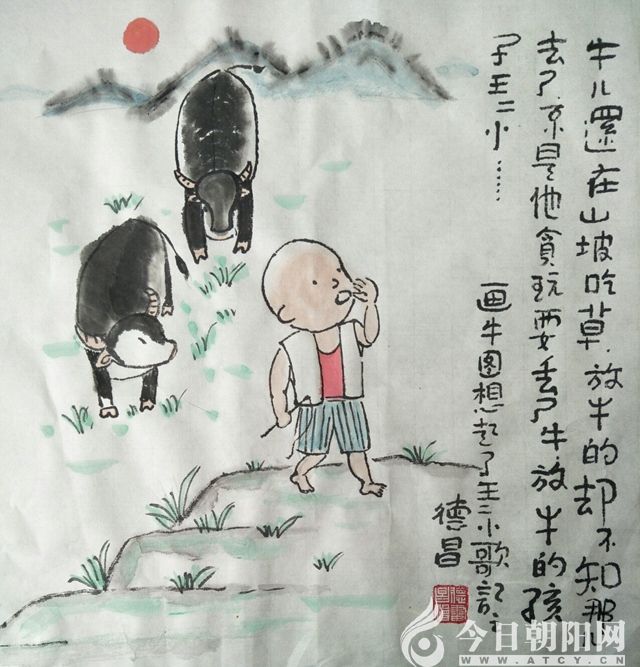 牛儿還在山坡吃草.放牛的却不知那
去了不是他貪玩耍丢了牛放牛的孩
子王二小......
画牛圖想起了王二小歌記之
德昌
今日朝阳网
WWW.ATCY.CN